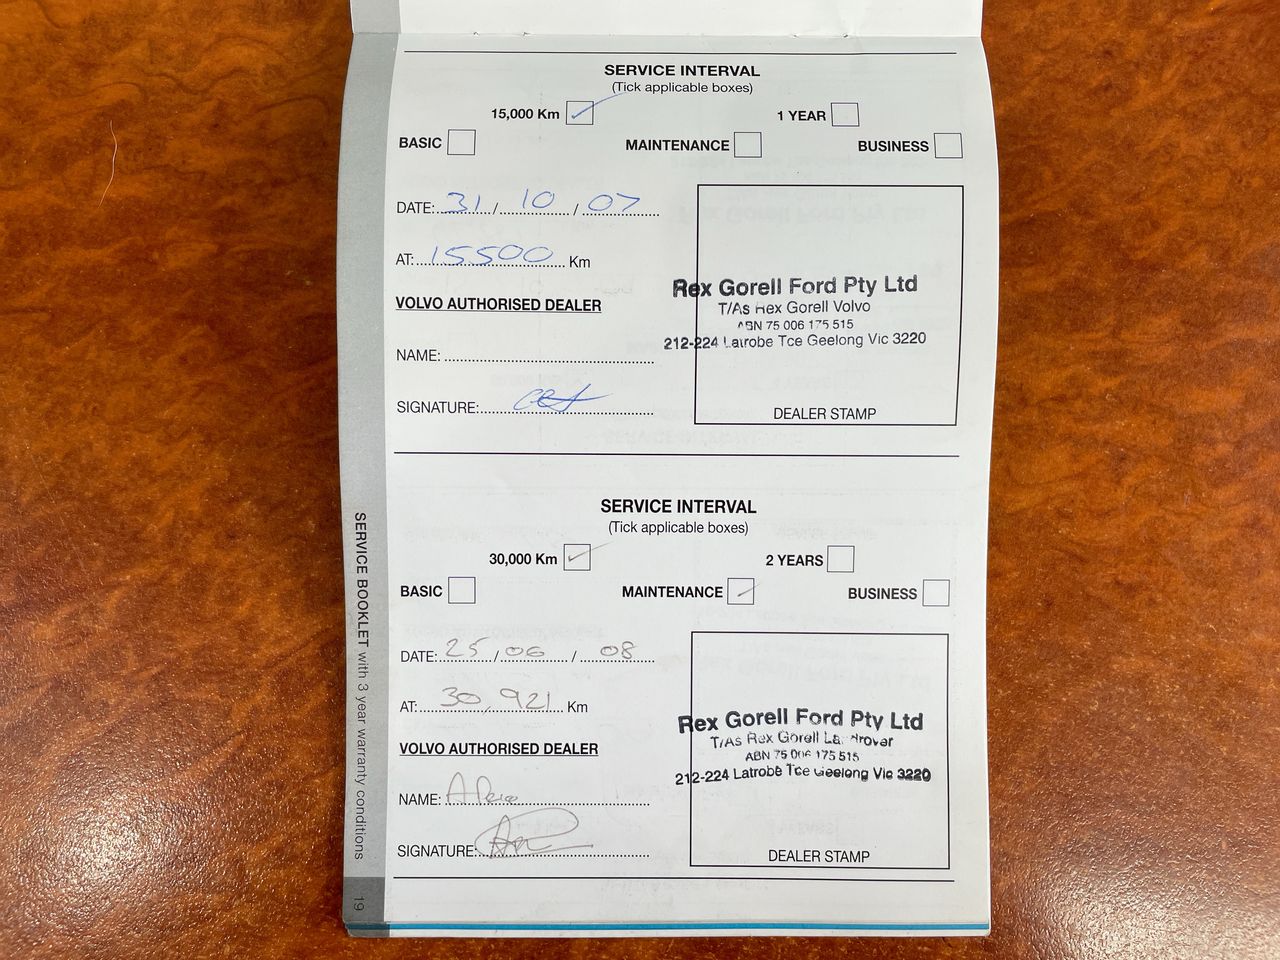 SERVICE INTERVAL
(Tick applicable boxes)
15,000 Km 1 YEAR
BASIC MAINTENANCE BUSINESS
DATE: 31 / 10 / 07
AT: 15500 Km
VOLVO AUTHORISED DEALER
NAME:
SIGNATURE:
Rex Gorell Ford Pty Ltd
T/As Rex Gorell Volvo
ABN 75 006 175 515
212-224 Latrobe Tce Geelong Vic 3220
DEALER STAMP
SERVICE INTERVAL
(Tick applicable boxes)
30,000 Km 2 YEARS
BASIC MAINTENANCE BUSINESS
DATE: 25 / 06 / 08
AT: 30,921 Km
VOLVO AUTHORISED DEALER
NAME: A
SIGNATURE:
Rex Gorell Ford Pty Ltd
T/As Rex Gorell Landrover
ABN 75 006 175 515
212-224 Latrobe Tce Geelong Vic 3220
DEALER STAMP
SERVICE BOOKLET with 3 year warranty conditions
19